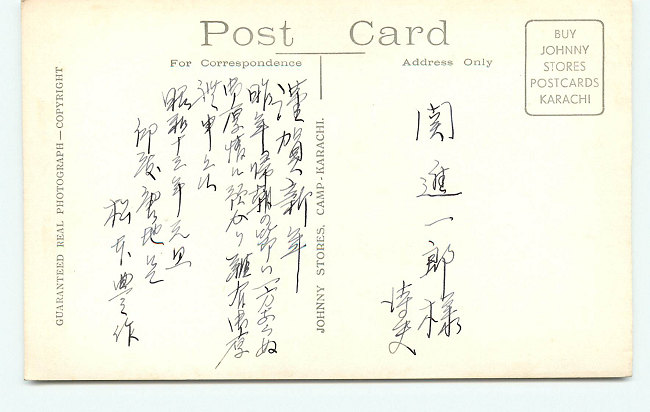 Post Card
For Correspondence
Address Only
BUY
JOHNNY
STORES
POSTCARDS
KARACHI
GUARANTEED REAL PHOTOGRAPH — COPYRIGHT
JOHNNY STORES, CAMP-KARACHI.
関進一郎様
謹賀新年
昨年帰朝の節は一方ならぬ
御厚情に預かり難有御厚
昭和十三年元旦
松本豊作